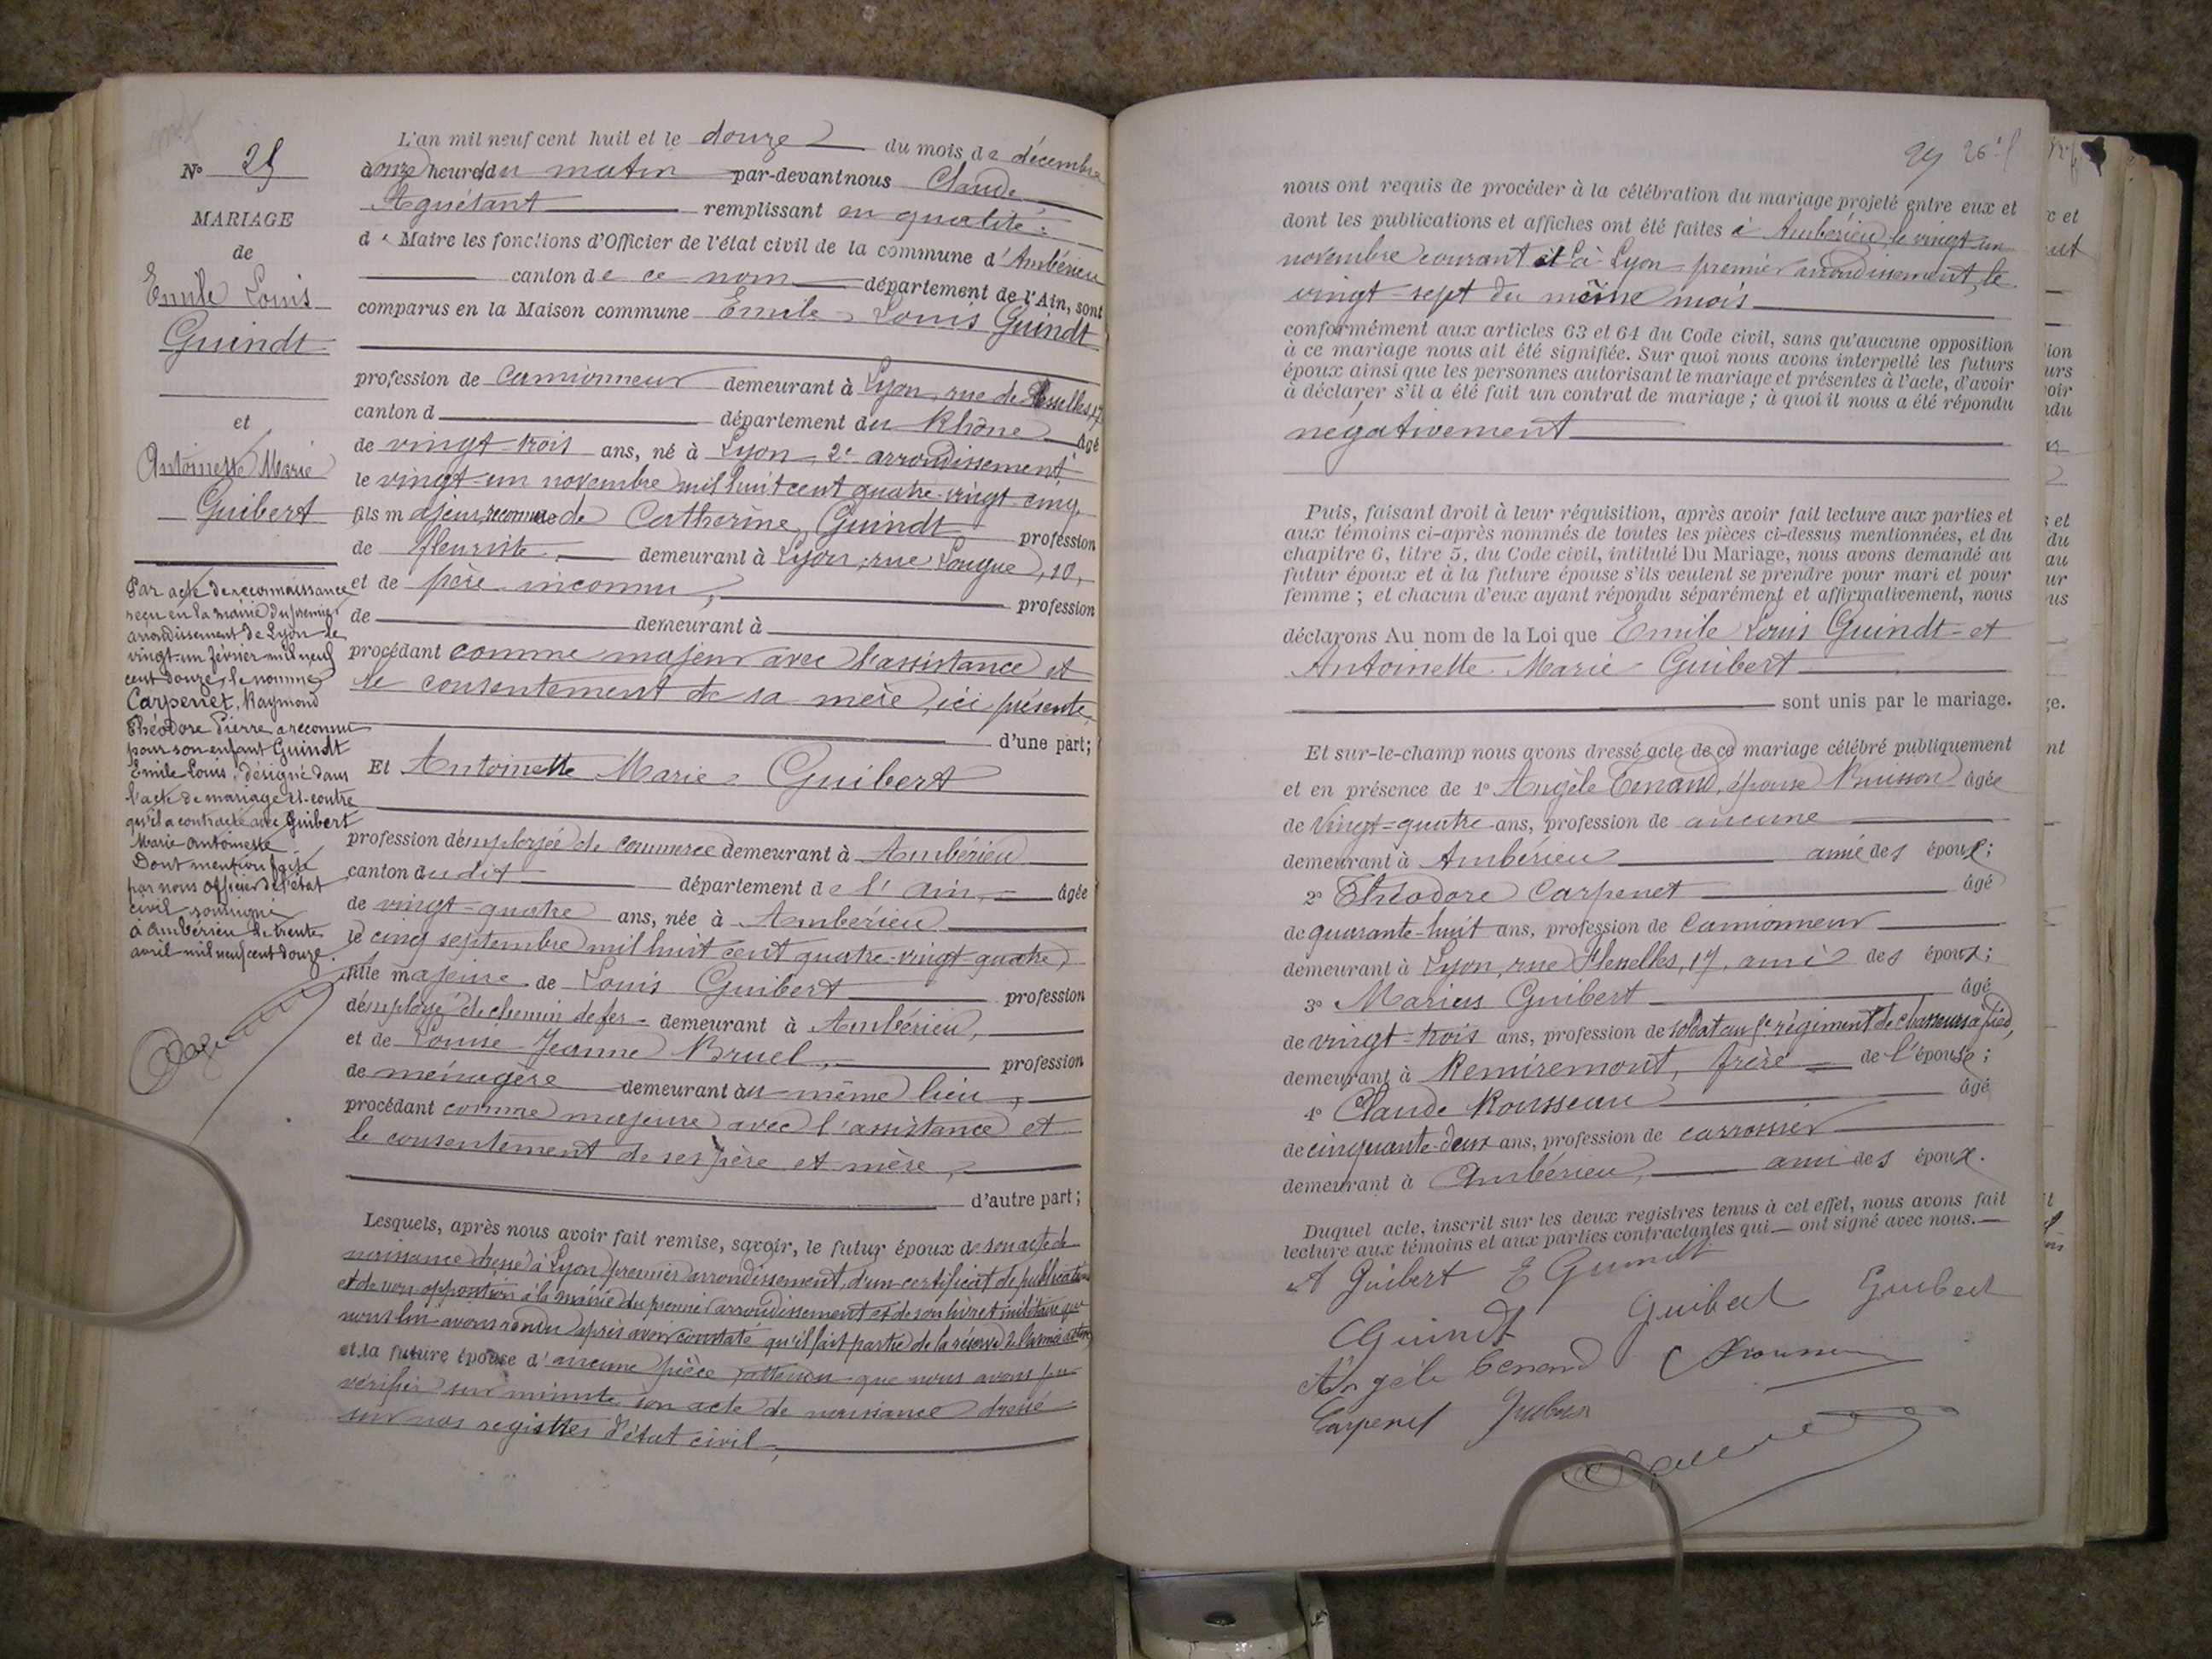 N° 25
MARIAGE
de
Emile Louis
Guindt
et
Antoinette Marie
Guibert
Par acte de reconnaissance
reçu en la mairie du premier
arrondissement de Lyon le
vingt-un février mil neuf
cent douze, le nommé
Carpenet, Raymond
Théodore Pierre a reconnu
pour son enfant Guindt
Emile Louis, désigné dans
l'acte de mariage ci-contre
qu'il a contracté avec Guibert
Marie Antoinette
Dont mention faite
par nous officier de l'état
civil soussigné
à Ambérieu le trente
avril mil neuf cent douze.
L'an mil neuf cent huit et le douze du mois de décembre
à onze heures du matin par-devant nous Claude
Aguétant remplissant en qualité
de Maire les fonctions d'Officier de l'état civil de la commune d'Ambérieu
canton de ce nom département de l'Ain, sont
comparus en la Maison commune Emile Louis Guindt
profession de camionneur demeurant à Lyon, rue de Flesselles, 17
canton d département du Rhône âgé
de vingt-trois ans, né à Lyon, 2e arrondissement,
le vingt-un novembre mil huit cent quatre-vingt-cinq,
fils majeur, reconnu de Catherine Guindt profession
de fleuriste demeurant à Lyon, rue Longue, 10,
et de père inconnu, profession
de demeurant à
procédant comme majeur avec l'assistance et
le consentement de sa mère, ici présente,
d'une part;
Et Antoinette Marie Guibert
profession d'employée de commerce demeurant à Ambérieu
canton dudit département de l'Ain, âgée
de vingt-quatre ans, née à Ambérieu
le cinq septembre mil huit cent quatre-vingt-quatre,
fille majeure de Louis Guibert profession
d'employé de chemin de fer demeurant à Ambérieu,
et de Louise Jeanne Bruel, profession
de ménagère demeurant au même lieu,
procédant comme majeure avec l'assistance et
le consentement de ses père et mère,
d'autre part;
Lesquels, après nous avoir fait remise, savoir, le futur époux de son acte de
naissance dressé à Lyon premier arrondissement, d'un certificat de publication
et de non opposition à la mairie du premier arrondissement et de son livret militaire que
nous lui avons rendu après avoir constaté qu'il fait partie de la réserve de l'armée active,
et la future épouse d'aucune pièce, attendu que nous avons pu
vérifier sur minute son acte de naissance dressé
sur nos registres d'état civil,
29 26
nous ont requis de procéder à la célébration du mariage projeté entre eux et
dont les publications et affiches ont été faites à Ambérieu, le vingt-un
novembre courant et à Lyon premier arrondissement, le
vingt-sept du même mois
conformément aux articles 63 et 64 du Code civil, sans qu'aucune opposition
à ce mariage nous ait été signifiée. Sur quoi nous avons interpellé les futurs
époux ainsi que les personnes autorisant le mariage et présentes à l'acte, d'avoir
à déclarer s'il a été fait un contrat de mariage; à quoi il nous a été répondu
négativement
Puis, faisant droit à leur réquisition, après avoir fait lecture aux parties et
aux témoins ci-après nommés de toutes les pièces ci-dessus mentionnées, et du
chapitre 6, titre 5, du Code civil, intitulé Du Mariage, nous avons demandé au
futur époux et à la future épouse s'ils veulent se prendre pour mari et pour
femme; et chacun d'eux ayant répondu séparément et affirmativement, nous
déclarons Au nom de la Loi que Emile Louis Guindt et
Antoinette Marie Guibert
sont unis par le mariage.
Et sur-le-champ nous avons dressé acte de ce mariage célébré publiquement
et en présence de 1° Angèle Tenand, épouse Buisson âgée
de vingt-quatre ans, profession de aucune
demeurant à Ambérieu amie des époux;
2° Théodore Carpenet âgé
de quarante-huit ans, profession de camionneur
demeurant à Lyon, rue Flesselles, 17, ami des époux;
3° Marius Guibert âgé
de vingt-trois ans, profession de soldat au 5e régiment de chasseurs à pied,
demeurant à Remiremont, frère de l'épouse;
4° Claude Rousseau âgé
de cinquante-deux ans, profession de carrossier
demeurant à Ambérieu, ami des époux.
Duquel acte, inscrit sur les deux registres tenus à cet effet, nous avons fait
lecture aux témoins et aux parties contractantes qui ont signé avec nous.
A Guibert E Guindt
CGuindt Guibert Guibert
Angèle Tenand
Carpenet